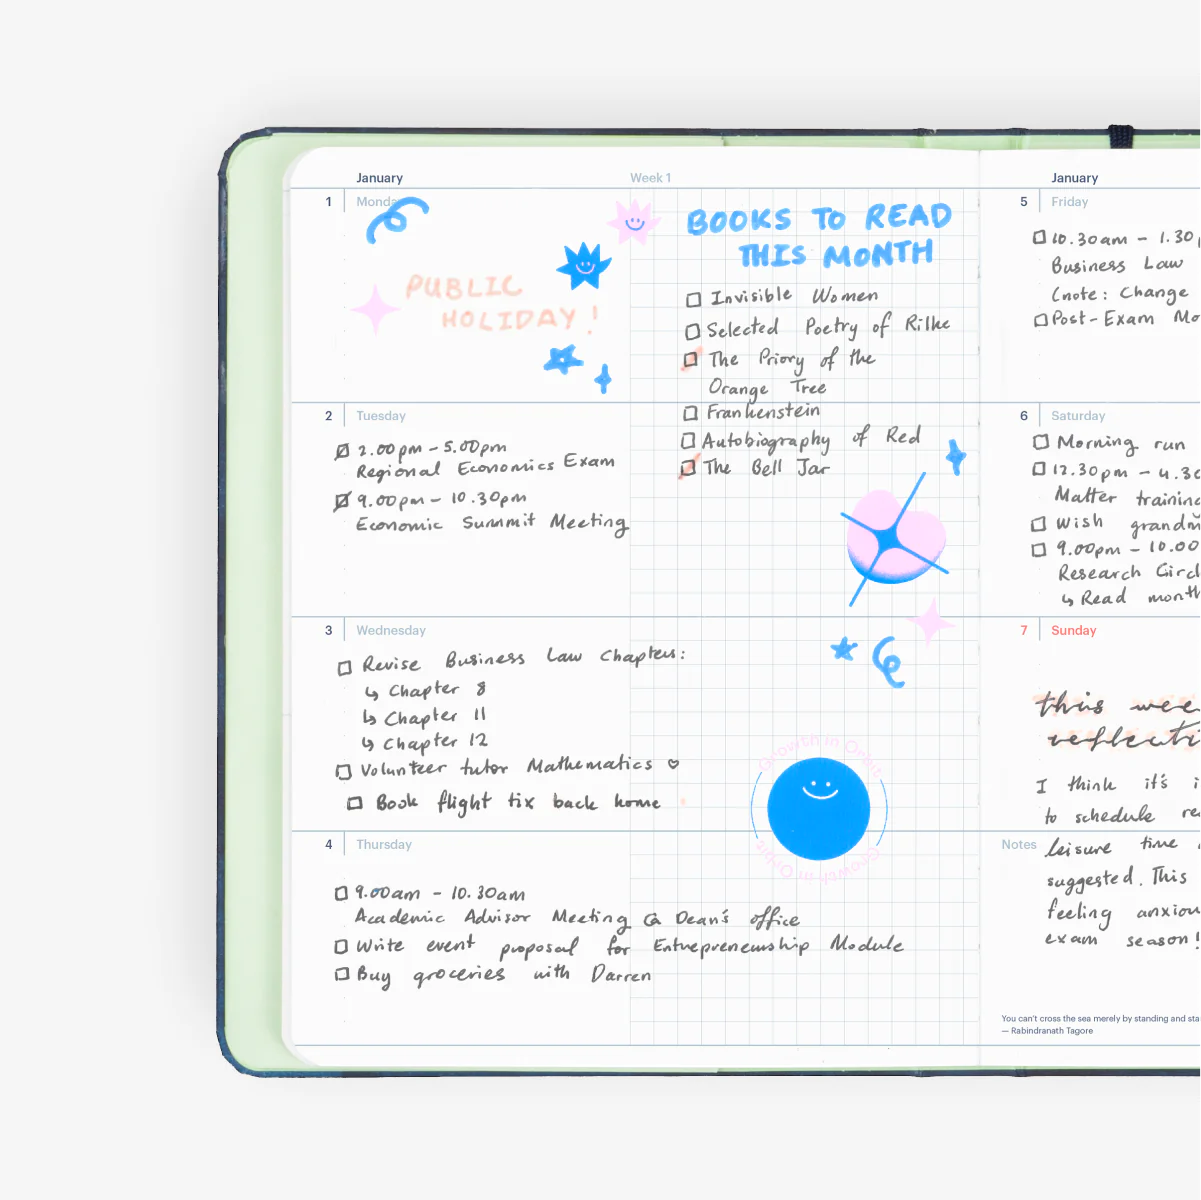 January
Week 1
1 Monday
PUBLIC
HOLIDAY!
BOOKS TO READ
THIS MONTH
Invisible Women
Selected Poetry of Rilke
The Priory of the
Orange Tree
Frankenstein
Autobiography of Red
The Bell Jar
2 Tuesday
2.00pm - 5.00pm
Regional Economics Exam
9.00pm - 10.30pm
Economic Summit Meeting
3 Wednesday
Revise Business Law Chapters:
↳ Chapter 8
↳ Chapter 11
↳ Chapter 12
Volunteer tutor Mathematics ♡
Book flight tix back home
Growth in Orbit
Growth in Orbit
4 Thursday
9.00am - 10.30am
Academic Advisor Meeting @ Dean's office
Write event proposal for Entrepreneurship Module
Buy groceries with Darren
January
5 Friday
10.30am - 1.30p
Business Law
(note: Change
Post-Exam Mo
6 Saturday
Morning run
12.30pm - 4.30
Matter training
Wish grandm
9.00pm - 10.00
Research Circl
↳ Read month
7 Sunday
this wee
reflecti
I think it's i
to schedule re
Notes
leisure time
suggested. This
feeling anxiou
exam season!
You can't cross the sea merely by standing and sta
— Rabindranath Tagore